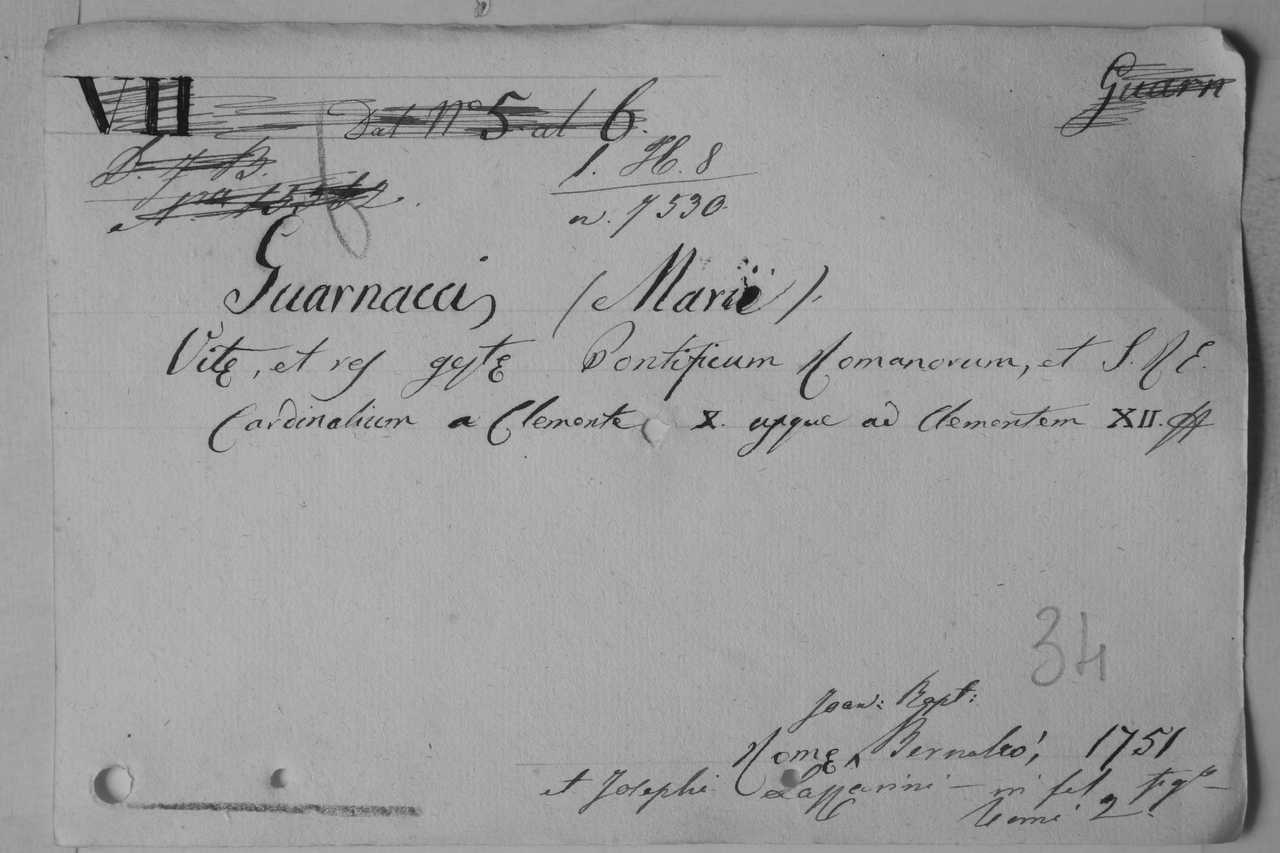 VII Dal Nº 5 al 6. Guarn
1. H. 8
n. 7530
Guarnacci, (Marii).
Vitę, et res gestę Pontificum Romanorum, et S. R. E.
Cardinalium a Clemente X. usque ad Clementem XII.
34
Joan: Bapt:
Romę Bernabo', 1751
et Josephi Lazzarini — in fol. figto —
tomi 2.